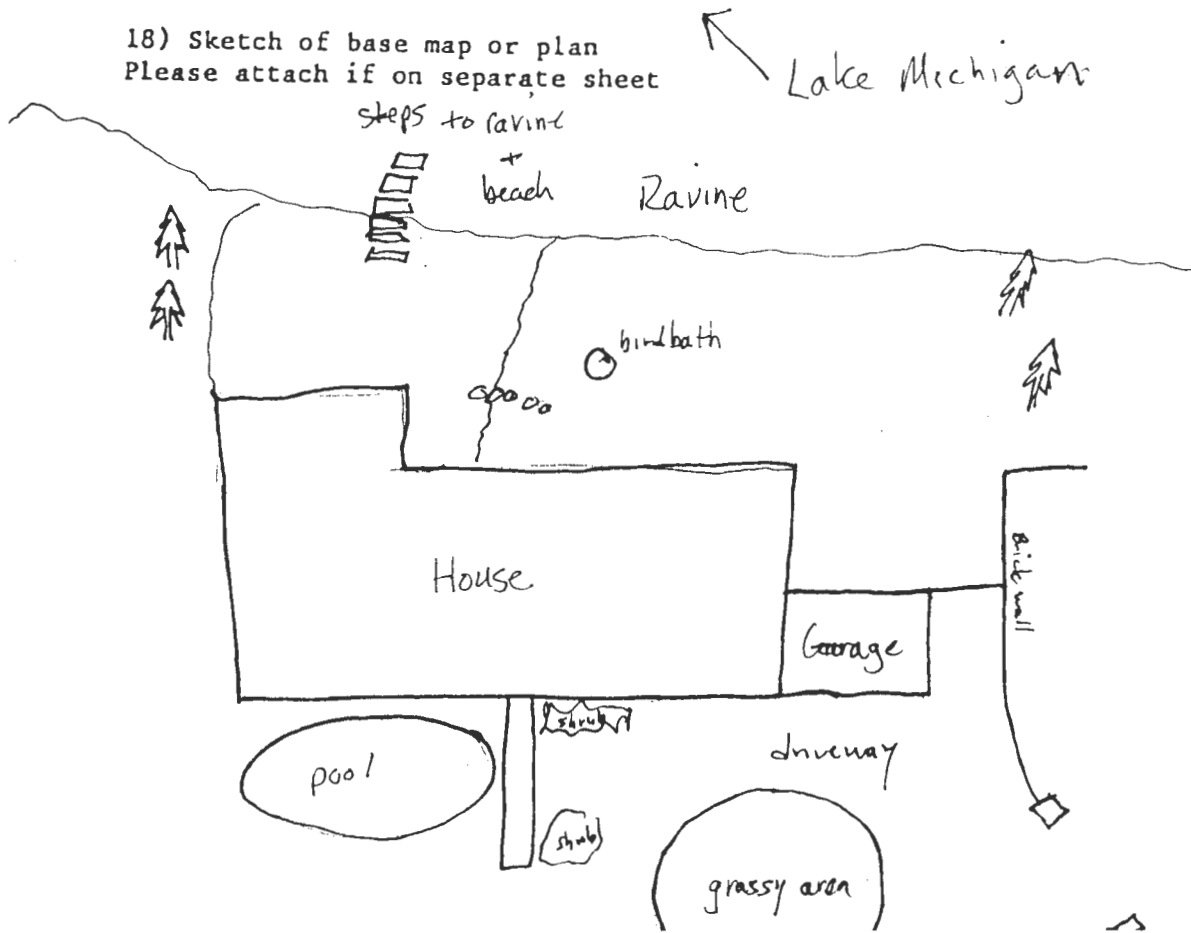 18) Sketch of base map or plan
Please attach if on separate sheet
Lake Michigan
steps to ravine
+
beach
Ravine
birdbath
House
Brick wall
Garage
shrub
pool
driveway
shrub
grassy area